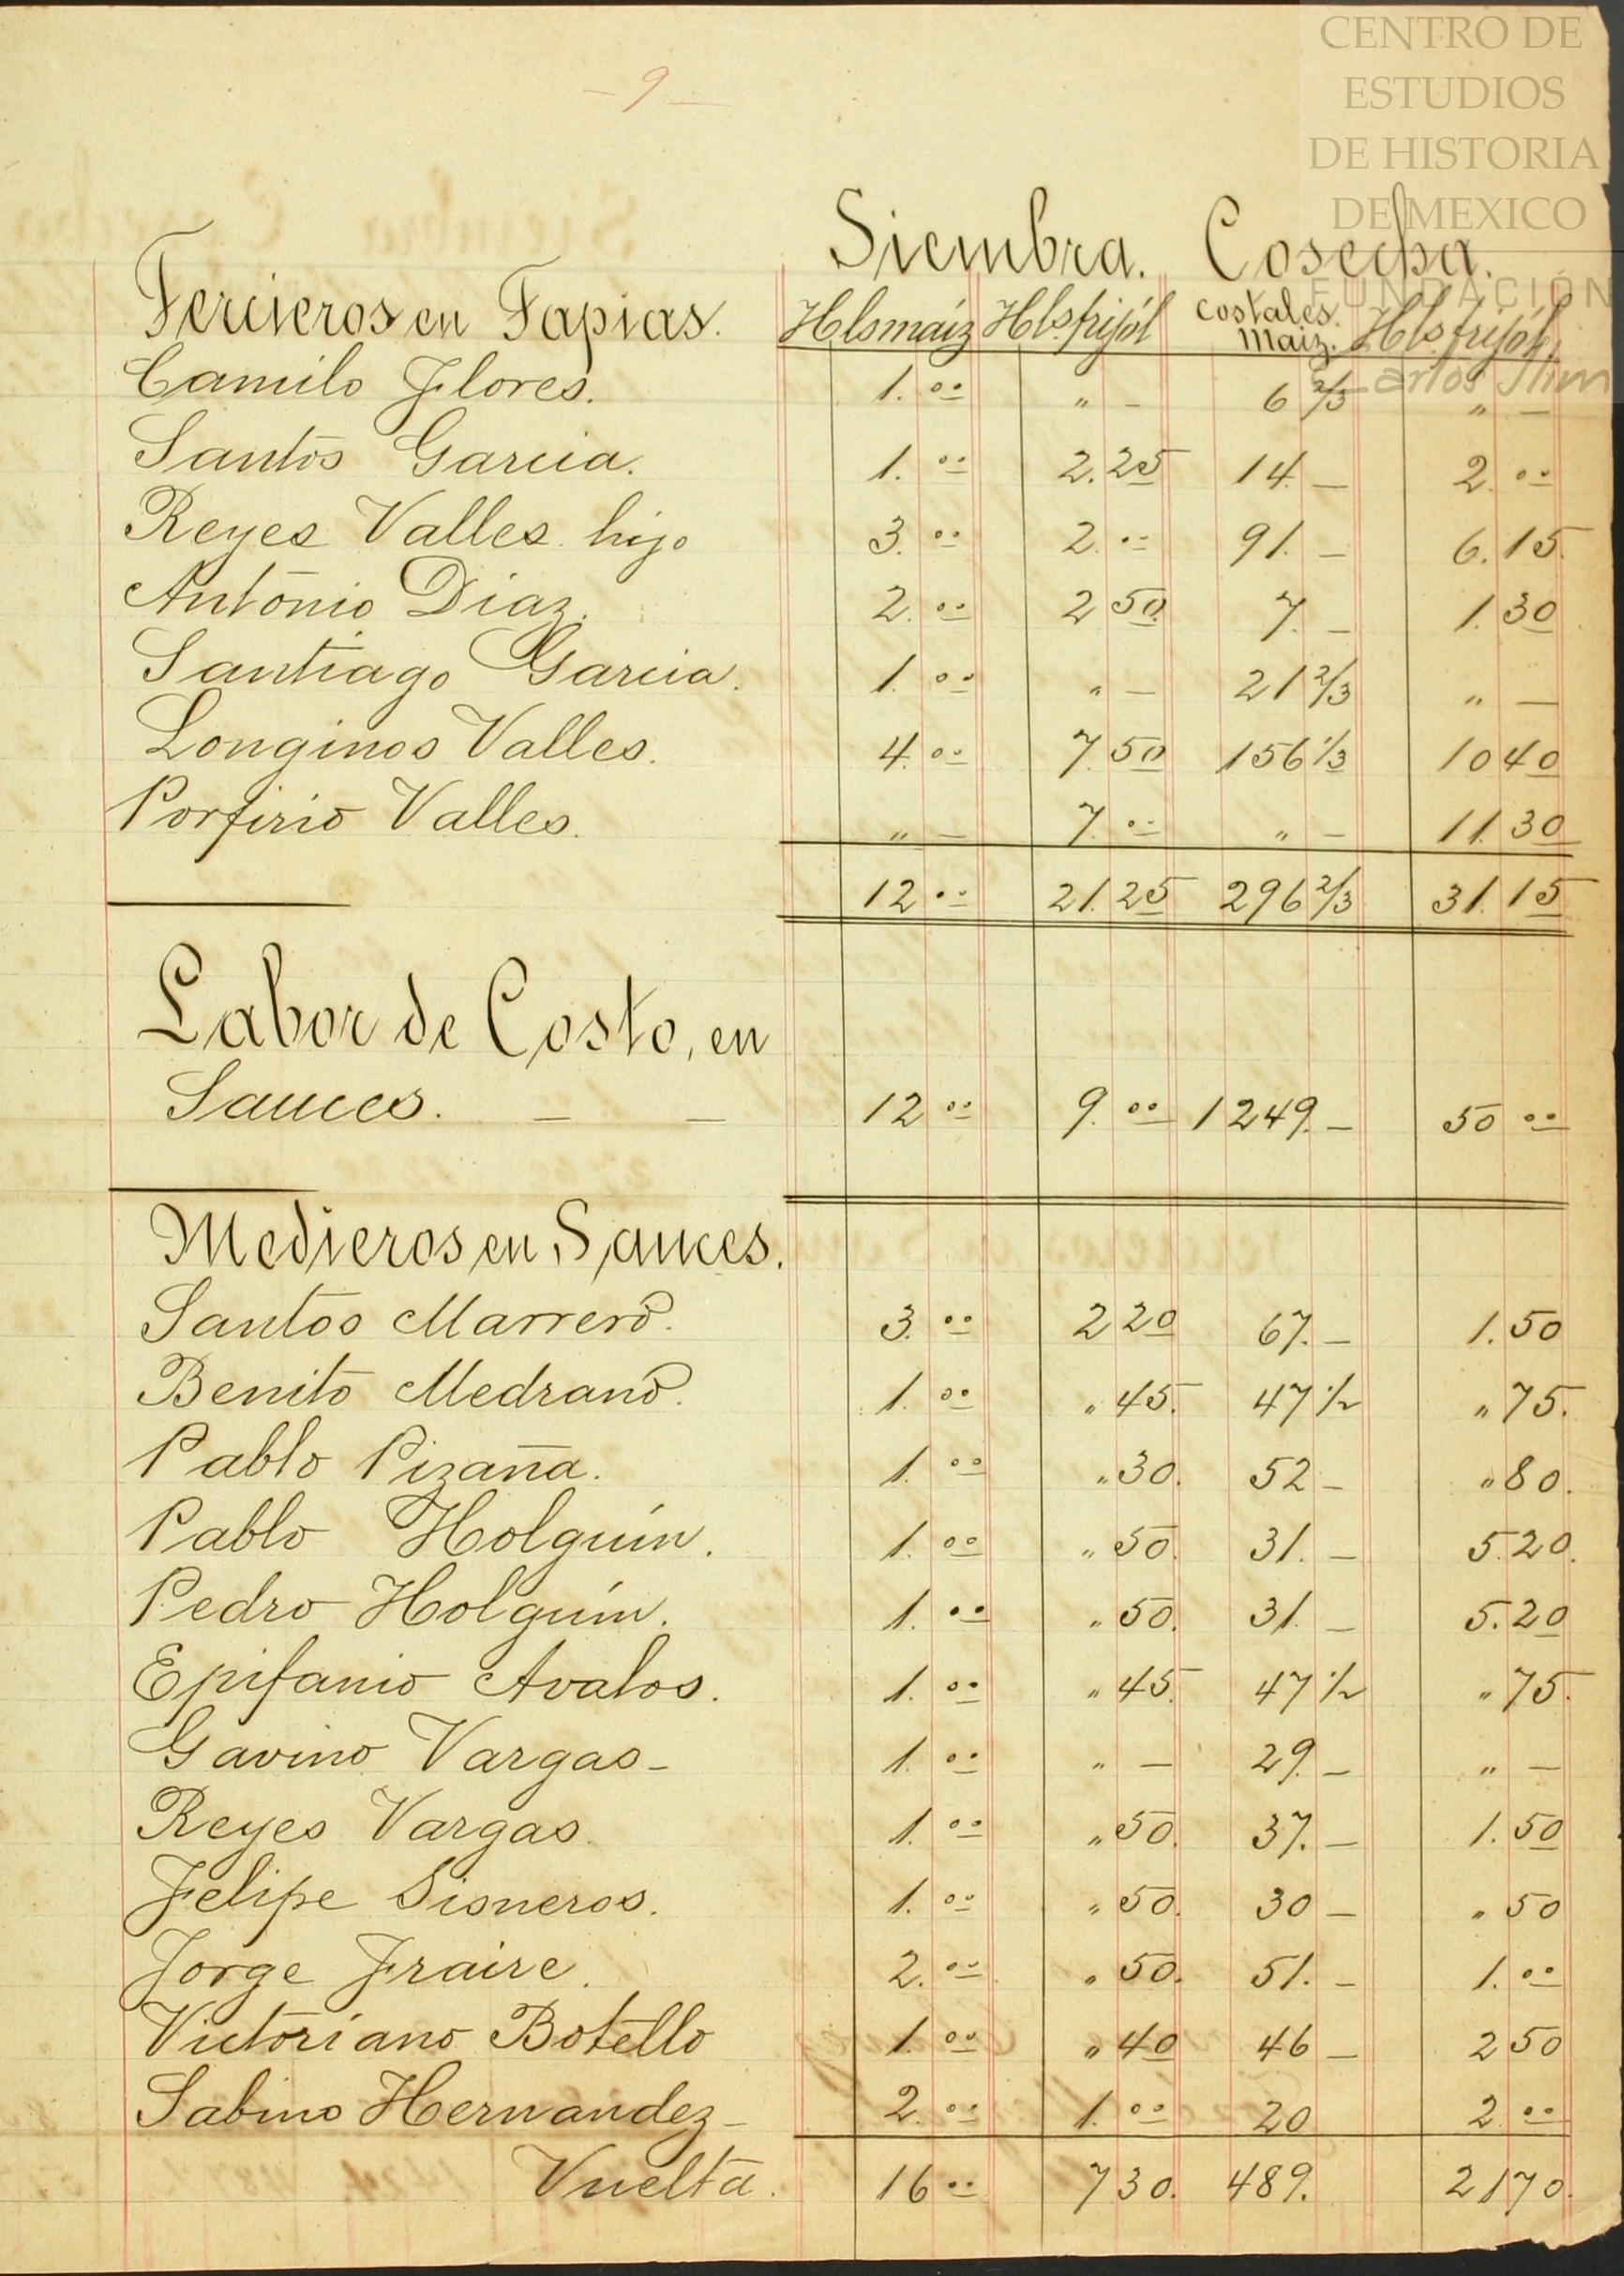 CENTRO DE
ESTUDIOS
DE HISTORIA
DE MEXICO
FUNDACIÓN
Carlos Slim
- 9 -
Siembra. Cosecha.
Tercieros en Tapias. Hls maíz Hls. frijól Costales. Maiz. Hls frijól
Camilo Flores. 1.00 " - 6 2/3 " -
Santos Garcia. 1.00 2.25 14 - 2.00
Reyes Valles hijo 3.00 2.00 91. - 6.15
Antonio Diaz. 2.00 2 50 7. - 1.30
Santiago Garcia. 1.00 " - 21 2/3 " -
Longinos Valles. 4.00 7.50 156 1/3 10 40
Porfirio Valles. " - 7.00 " - 11.30
12 00 21.25 296 2/3 31.15
Labor de Costo, en
Sauces. - - 12 00 9.00 1249. - 50 00
Medieros en Sauces.
Santos Marrero. 3.00 2 20 67. - 1.50
Benito Medrano. 1.00 " 45. 47 1/2 " 75.
Pablo Pizaña. 1.00 " 30. 52 - " 80.
Pablo Holguín. 1.00 " 50. 31. - 5.20.
Pedro Holguín. 1.00 " 50. 31. - 5.20
Epifanio Avalos. 1.00 " 45. 47 1/2 " 75.
Gavino Vargas - 1.00 " - 29. - " -
Reyes Vargas. 1.00 " 50. 37. - 1.50
Felipe Sisneros. 1.00 " 50. 30 - " 50
Jorge Fraire. 2.00 " 50. 51. - 1.00
Victoriano Botello 1.00 " 40 46 - 2 50
Sabino Hernandez - 2.00 1.00 20 2.00
Vuelta. 16 00 7 30. 489. 21 70.